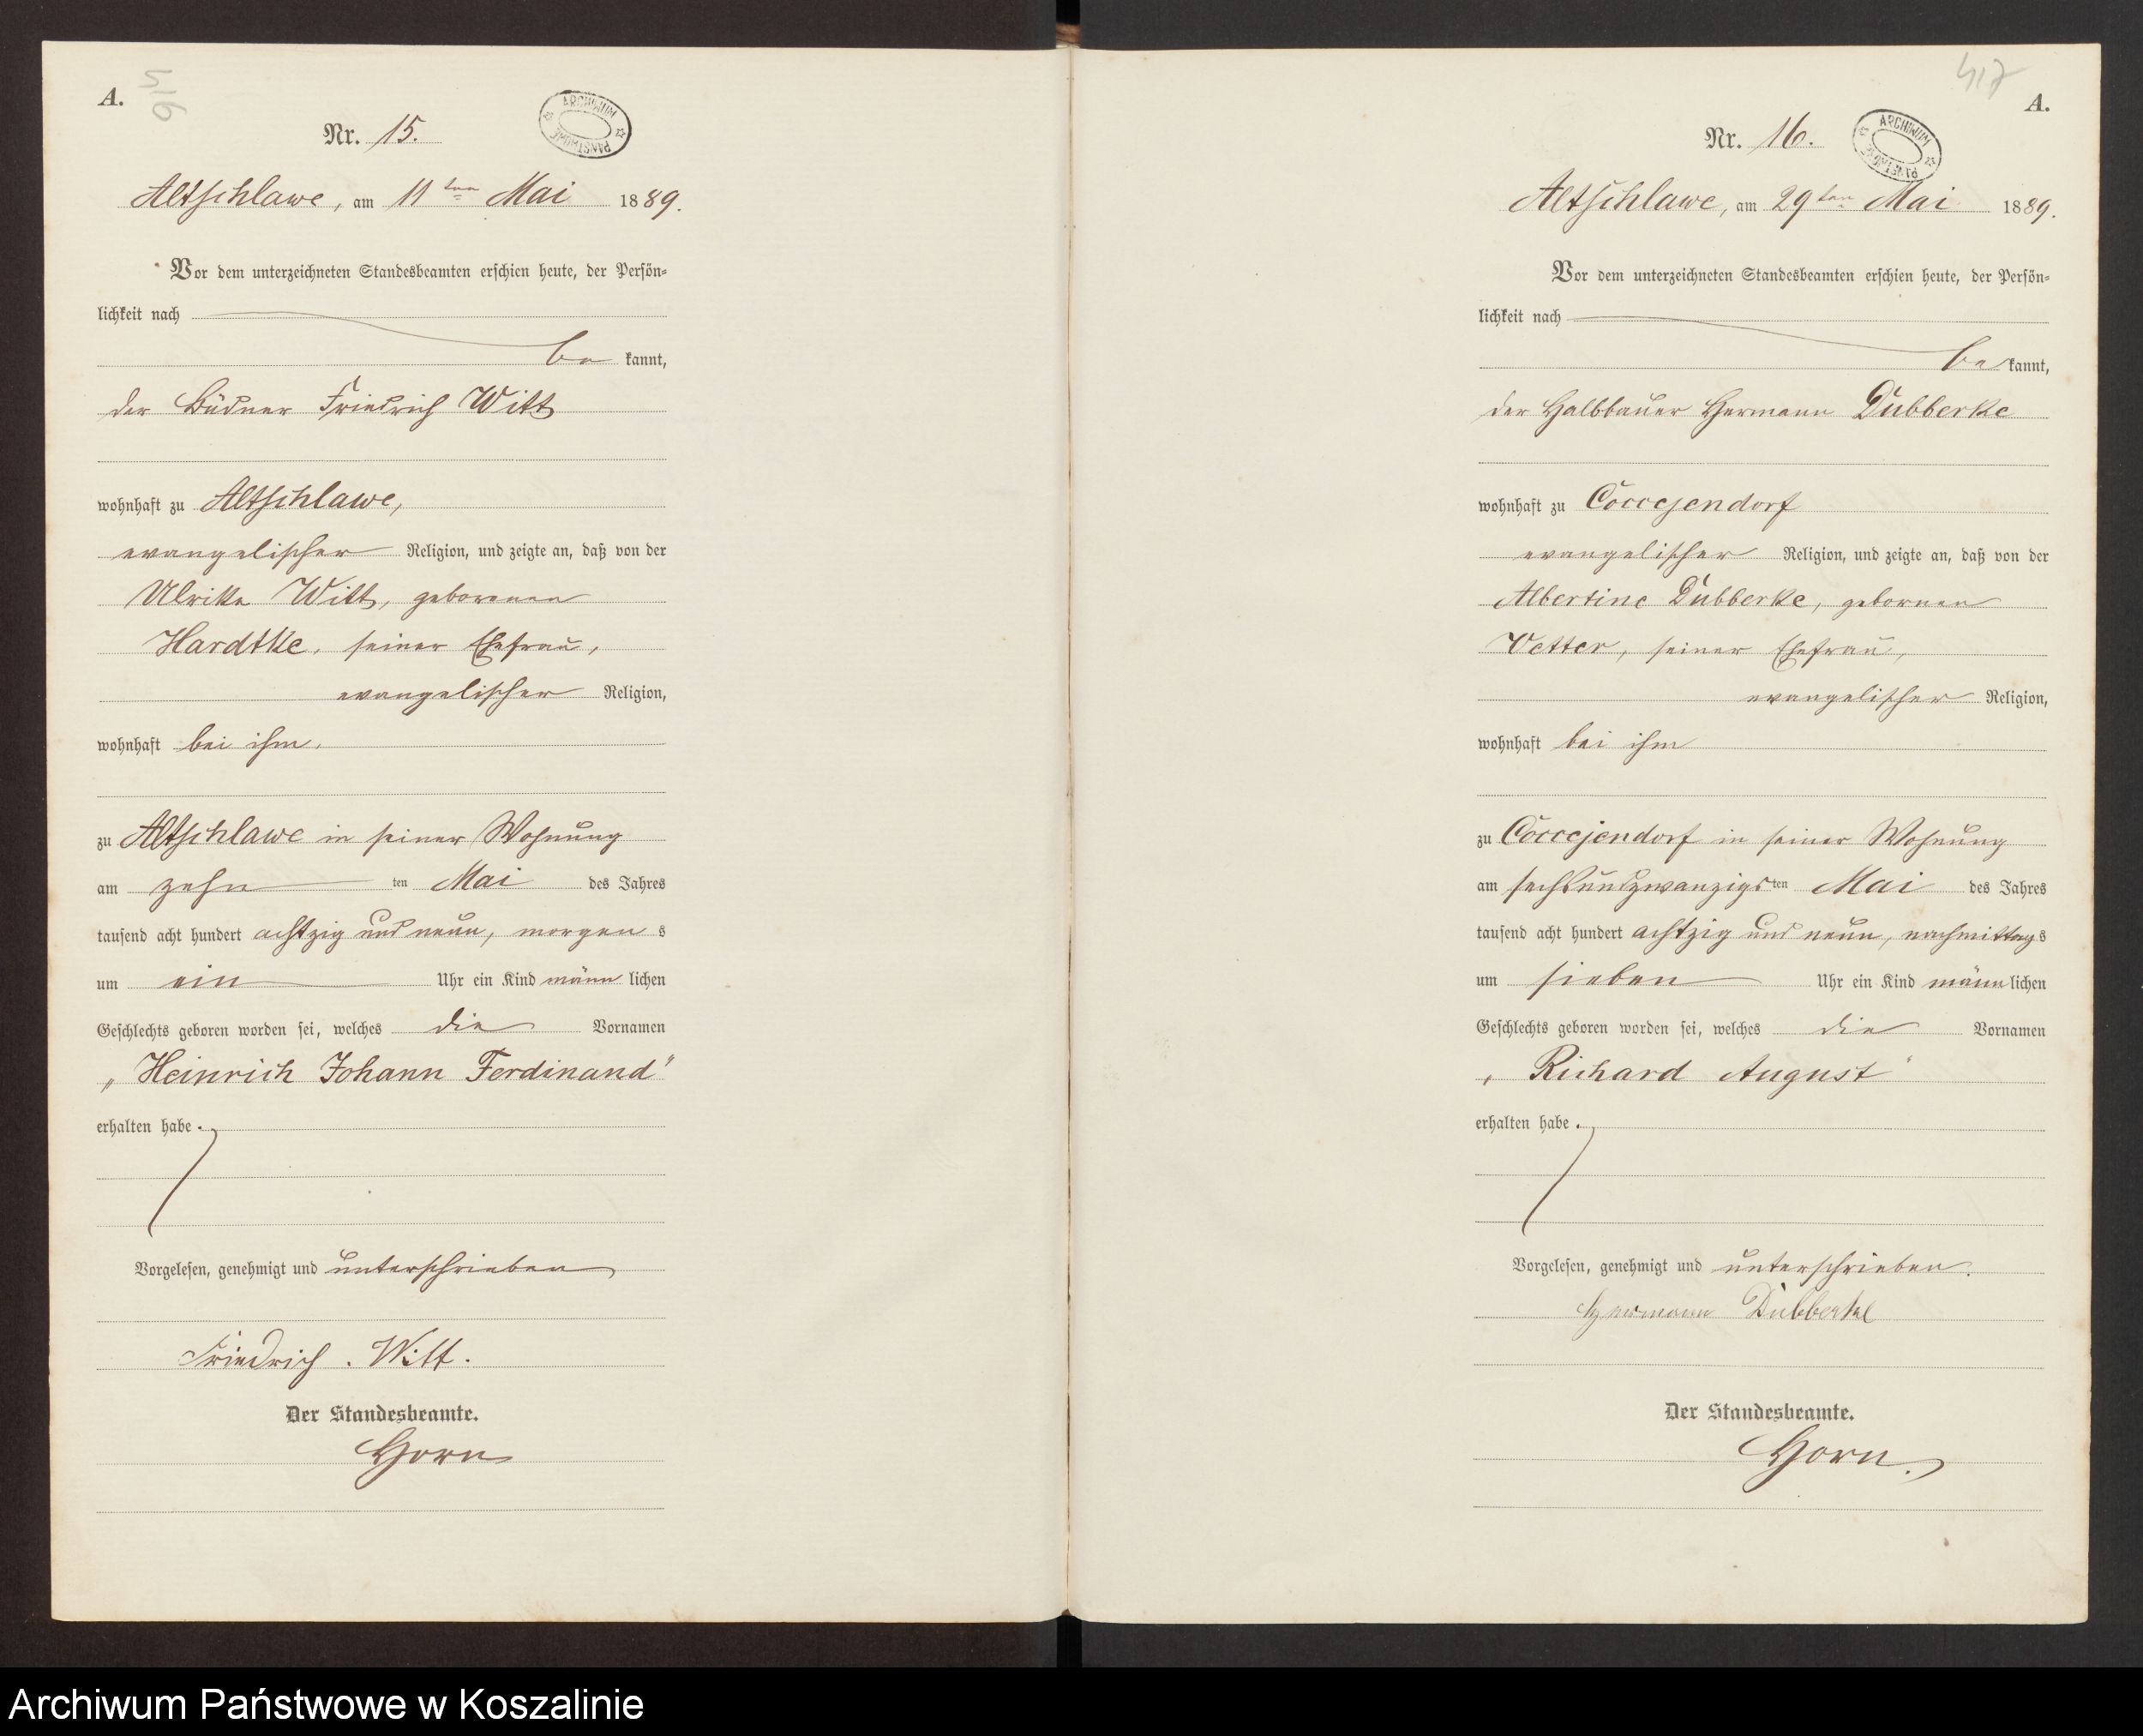 A.
516
Nr. 15.
ARCHIWUM PAŃSTWOWE
Altschlawe, am 11ten Mai 1889.
Vor dem unterzeichneten Standesbeamten erschien heute, der Persön=
lichkeit nach
be kannt,
der Büdner Friedrich Witt
wohnhaft zu Altschlawe,
evangelischer Religion, und zeigte an, daß von der
Ulrike Witt, geborenen
Hardtke, seiner Ehefrau,
evangelischer Religion,
wohnhaft bei ihm,
zu Altschlawe in seiner Wohnung
am zehn ten Mai des Jahres
tausend acht hundert achtzig und neun, morgen s
um ein Uhr ein Kind männ lichen
Geschlechts geboren worden sei, welches die Vornamen
„Heinrich Johann Ferdinand"
erhalten habe.
Vorgelesen, genehmigt und unterschrieben
Friedrich. Witt.
Der Standesbeamte.
Horn
417
A.
Nr. 16.
ARCHIWUM PAŃSTWOWE
Altschlawe, am 29ten Mai 1889.
Vor dem unterzeichneten Standesbeamten erschien heute, der Persön=
lichkeit nach
be kannt,
der Halbbauer Hermann Dubberke
wohnhaft zu Coccejendorf
evangelischer Religion, und zeigte an, daß von der
Albertine Dubberke, gebornen
Vetter, seiner Ehefrau,
evangelischer Religion,
wohnhaft bei ihm
zu Coccejendorf in seiner Wohnung
am sechsundzwanzigs ten Mai des Jahres
tausend acht hundert achtzig und neun, nachmittag s
um sieben Uhr ein Kind männ lichen
Geschlechts geboren worden sei, welches die Vornamen
„Richard August"
erhalten habe.
Vorgelesen, genehmigt und unterschrieben.
Hermann Dubberke
Der Standesbeamte.
Horn.
Archiwum Państwowe w Koszalinie